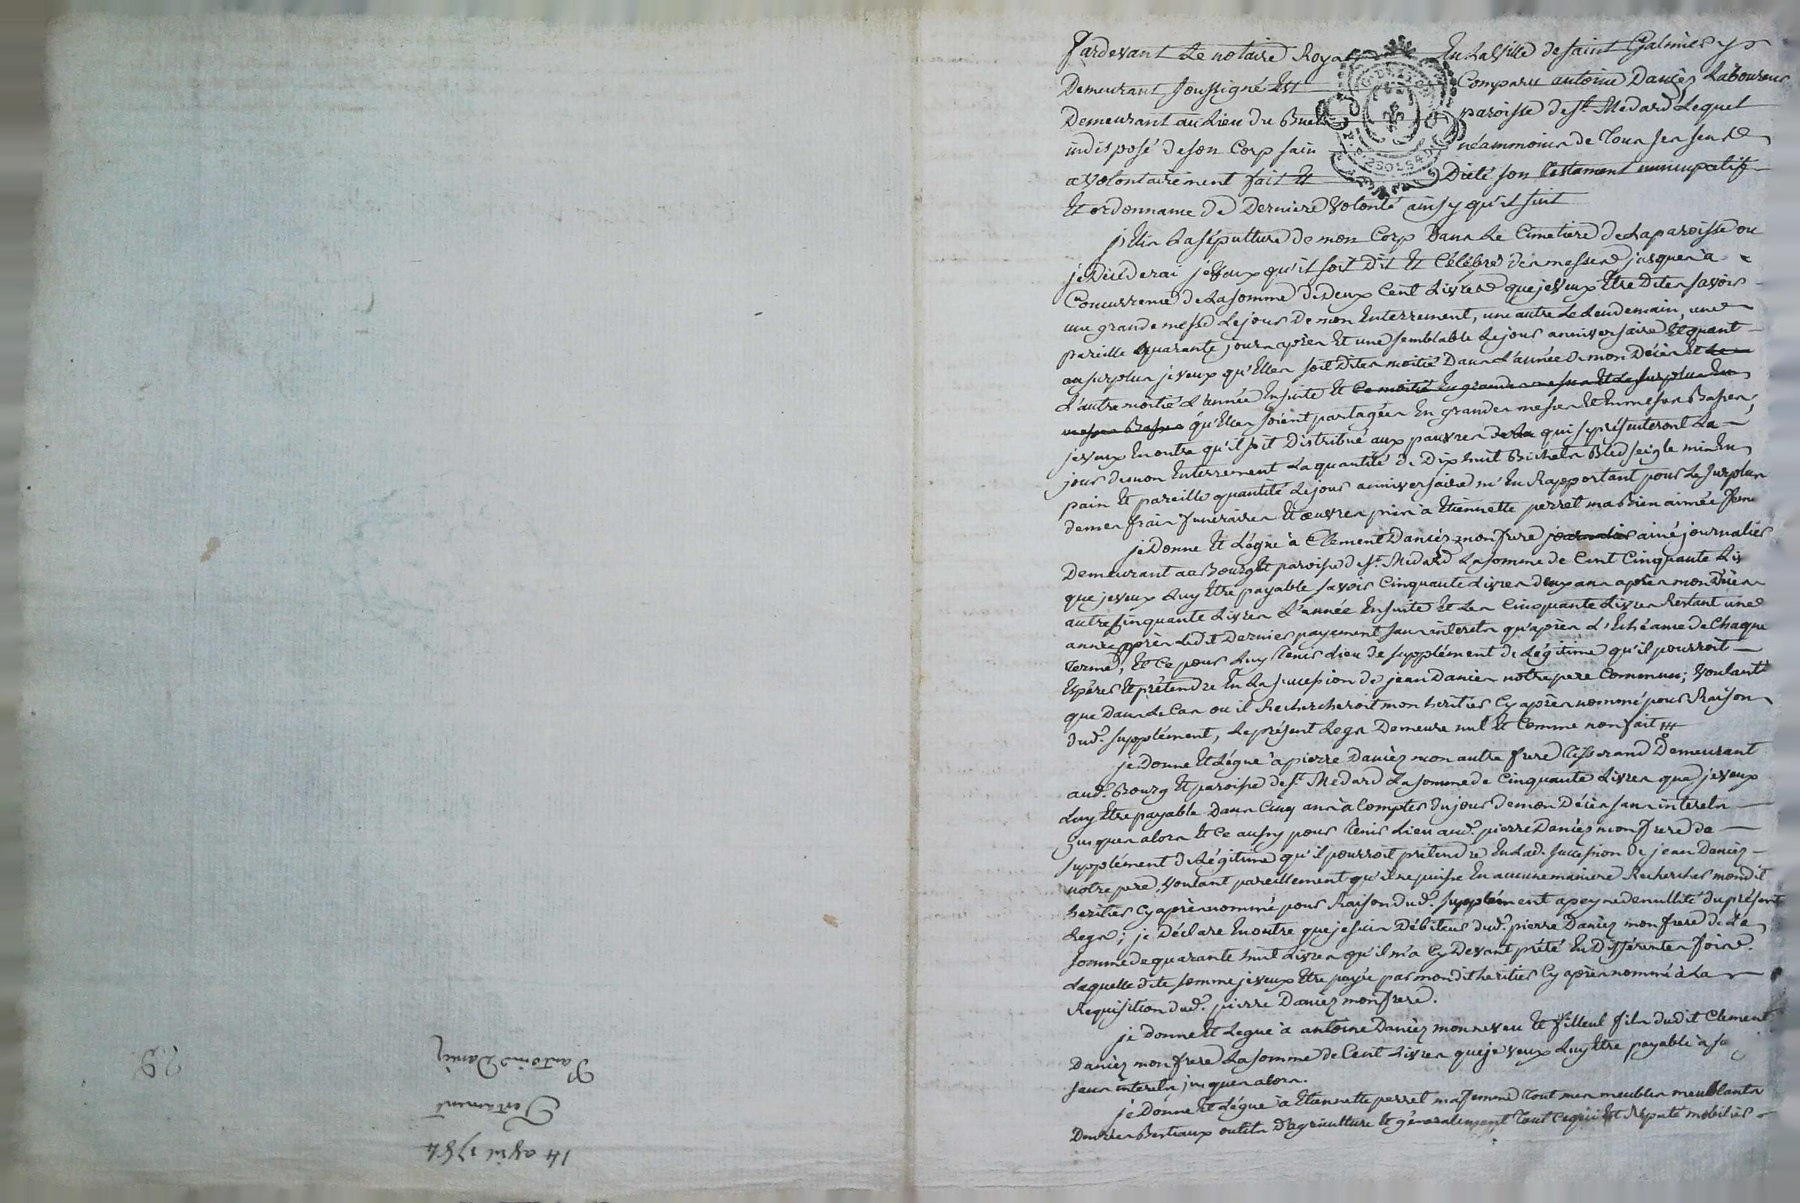 Pardevant Le notaire Royal En La Ville de saint Galmier y
Demeurant soussigné Est Comparu antoine Daniez Laboureur
Demeurant au Lieu du paroisse de st. Medard Lequel
indisposé de son Corp sain néammoins de Tous ses sens
a Volontairement fait Et Dicté son testament nuncupatif
Et ordonnance de Derniere Volonté ainsy qu'il suit
j'Elis La sépulture de mon Corp Dans Le Cimetiere de La paroisse ou
je Décéderai je Veux qu'il soit Dit Et Célébré des messes jusques à
Concurrence de La somme de Deux Cent Livres que je Veux Etre Dites savoir
une grande messe Le jour de mon Enterrement, une autre Le Lendemain, une
pareille quarante jours après Et une semblable Le jour anniversaire Et quant
au surplus je veux qu'Elles soit Dites moitié Dans L'année de mon Décès Et
L'autre moitié L'année Ensuite Et La moitié En grandes messes Et Le surplus En
messes Basses qu'Elles soient partagées En grandes messes Et En messes Basses,
je veux En outre qu'il soit Distribué aux pauvres de La qui se présenteront Le
jour de mon Enterrement La quantité de Dix huit Bichets Bled seigle mis En
pain Et pareille quantité Le jour anniversaire m'En Rapportant pour Le surplus
de mes frais funéraires Et œuvres pies à Etiennette perret ma Bien aimée feme
je Donne Et Lègue à Clement Daniez mon frere journalier ainé journalier
Demeurant au Bourg Et paroisse de st. Medard La somme de Cent Cinquante Liv
que je veux Luy Etre payable savoir Cinquante Livres deux ans après mon Décès
autre Cinquante Livres L'année Ensuite Et Les Cinquante Livres Restant une
année après Ledit Dernier payement sans interets qu'après L'Echéance de Chaque
terme, Et Ce pour Luy tenir Lieu de supplément de Légitime qu'il pourroit
Espérer Et prétendre En La succession de jean Daniez notre pere Commun; Voulant
que Dans Le Cas ou il Rechercheroit mon heritier Cy après nommé pour Raison
dud. supplément, Le présent Legs Demeure nul Et Comme non fait
je Donne Et Lègue à pierre Daniez mon autre frere tisserand Demeurant
aud. Bourg Et paroisse de st. Medard La somme de Cinquante Livres que je veux
Luy Etre payable Dans Cinq ans à Compter du jour de mon Décès sans interets
jusques alors Et Ce aussy pour tenir Lieu aud. pierre Daniez mon frere de
supplément de Légitime qu'il pourroit prétendre En Lad. succession de jean Daniez
notre pere, Voulant pareillement qu'il ne puisse En aucune maniere Rechercher mondit
heritier Cy après nommé pour Raison dud. supplément a peyne de nullité du présent
Legs; je Déclare En outre que je suis Débiteur dud. pierre Daniez mon frere de La
somme de quarante huit Livres qu'il m'a Cy Devant prêté En Différentes fois
Laquelle dite somme je veux Etre payée par mondit heritier Cy après nommé à La
Requisition dud. pierre Daniez mon frere.
je donne Et Legue à antoine Daniez mon neveu Et filleul fils dudit Clement
Daniez mon frere La somme de Cent Livres que je veux Luy Etre payable à sa
sans interets jusques alors.
je Donne Et Lègue à Etiennette perret ma femme tout mes meubles meublants
Denrées Bestiaux outils D'agriculture Et généralement tout Ce qui Est Réputé mobilier
14 avril 1784
Testament
d'antoine Daniez